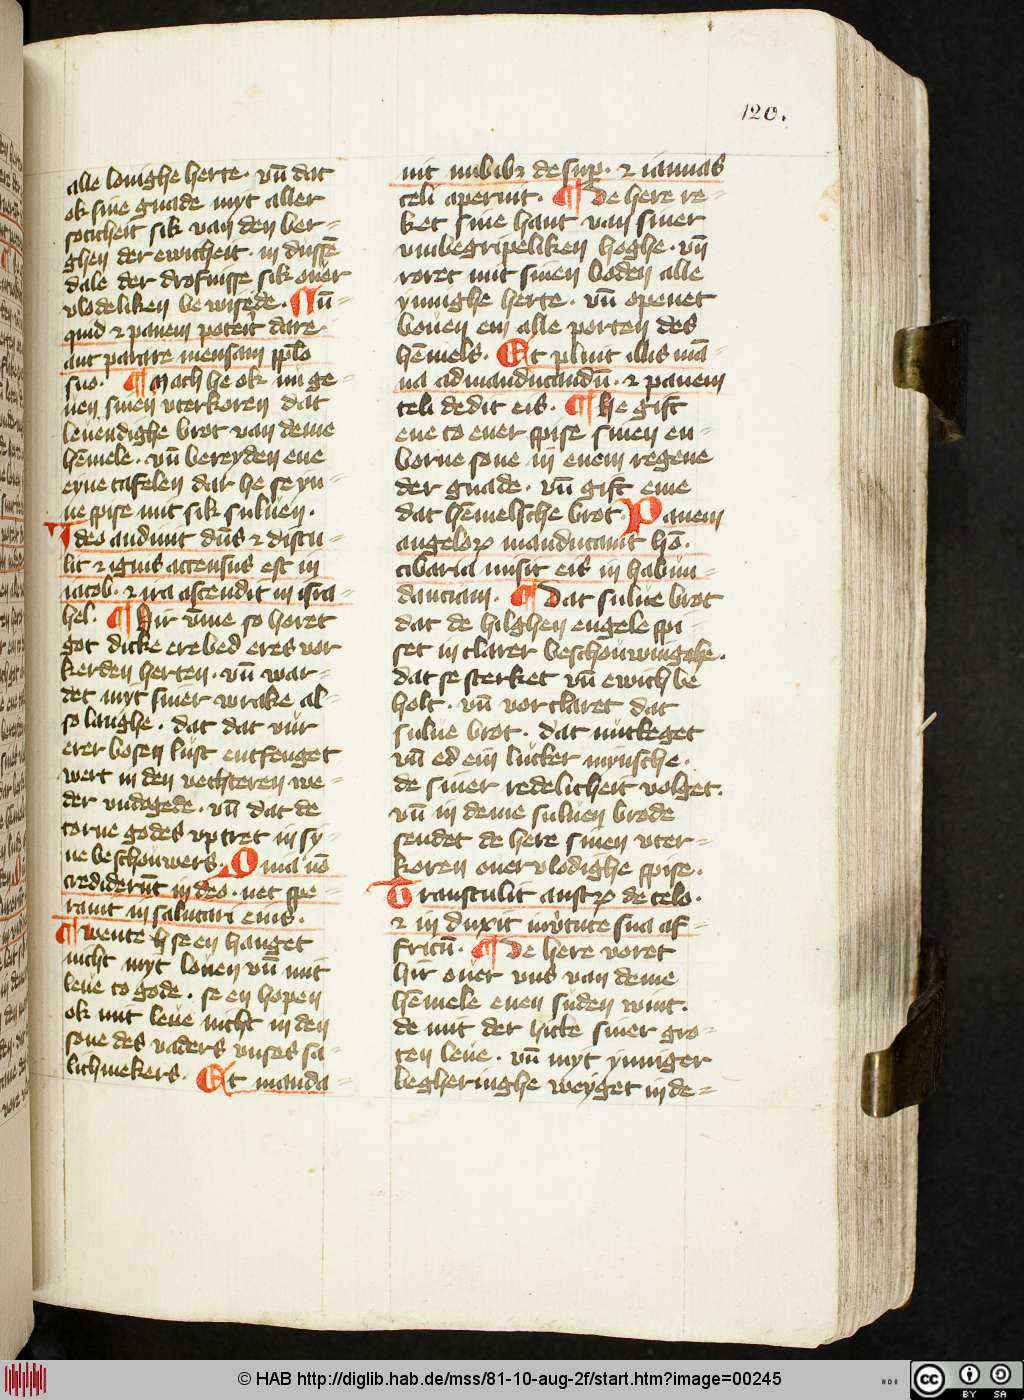 120.
alle louighe herte · vn̄ dat
ok sine gnade myt aller
soticheit sik van den ber-
ghen der ewicheit · in dussē
dale der drofnisse sik ouer
vlodeliken bewisede · Nū-
quid ⁊ panem poterit dare
aut parare mensam pplo
suo · ¶ Mach he ok nu ge-
uen sinen vterkoren dat
leuendighe brot van deme
hēmele · vn̄ bereyden ene
eyne tafelen dar he se yn-
ne spise mit sik suluen ·
Ideo audiuit dūs ⁊ distu-
lit ⁊ ignis accensus est in
iacob · ⁊ ira ascendit in isra-
hel · ¶ Hir v̄me so horet
got dicke ere bed eres vor
kerden herten · vn̄ war-
det myt siner wrake al-
so langhe · dat dat vur
erer bosen lust entfenget
wert in den vechteren we-
der vndogede · vn̄ dat de
torne godes vptret in sy-
ne beschouwers · Quia nō
crediderūt in deo · nec spe-
rauit in salutari eius ·
¶ Wente se en hanget
nicht myt louen vn̄ mit
leue to gode · se en hopen
ok mit leue nicht in den
sone des vaders vnses sa-
lichmekers · Et manda-
uit nubibꝫ desup · ⁊ ianuas
celi aperuit · ¶ De here re-
ket sine hant van siner
vnbegripeliken hoghe · vn̄
roret mit sinen boden alle
ynnighe herte · vn̄ openet
bouen en alle porten des
hēmels · Et pluit illis mā-
na ad manducandū · ⁊ panem
celi dedit eis · ¶ He gift
ene to ener spise sinen en-
borne sone in enem regene
der gnade · vn̄ gift eme
dat hēmelsche brot · Panem
angeloꝝ manducauit hō ·
cibaria misit eis in habun-
danciam · ¶ Dat sulue brot
dat de hilghen engele spi-
set in clarer beschouwinghe ·
dat se sterket vn̄ ewich be
holt · vn̄ vorclaret dat
sulue brot · dat nutteget
vn̄ ed ein lutter mynsche ·
de siner redelicheit volget ·
vn̄ in deme suluen brode
sendet de here sinen vter-
koren ouervlodighe spise ·
Transtulit austꝝ de celo ·
⁊ in duxit in v̓tute sua af-
fricū · ¶ De here voret
hir ouer vns van deme
hēmele enen suden wint ·
de mit der hicke siner gro-
ten leue · vn̄ myt ynniger
begheringhe weyget in de-
© HAB http://diglib.hab.de/mss/81-10-aug-2f/start.htm?image=00245
HAB
cc BY SA